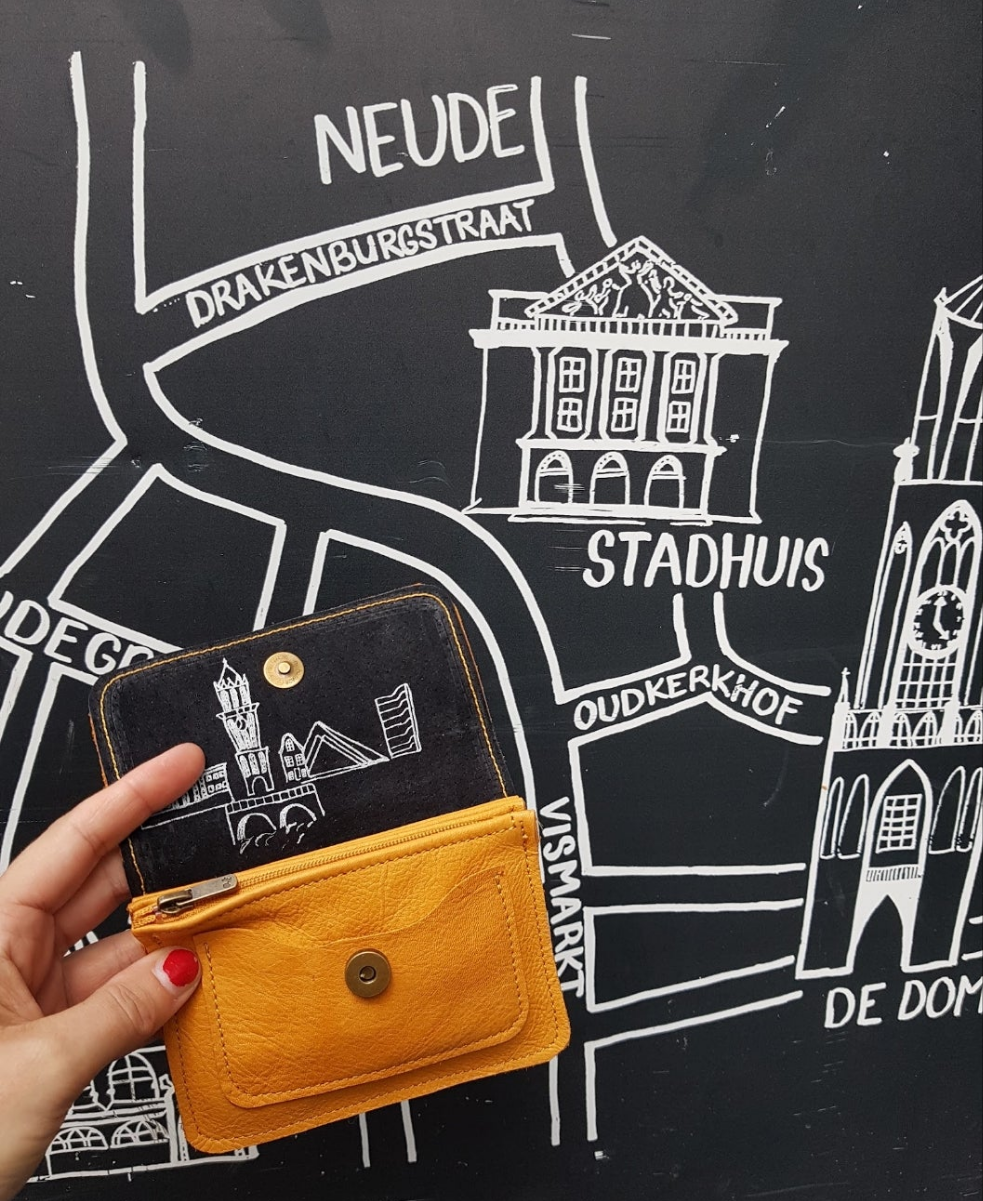 NEUDE
DRAKENBURGSTRAAT
STADHUIS
OUDKERKHOF
VISMARKT
DE DOM